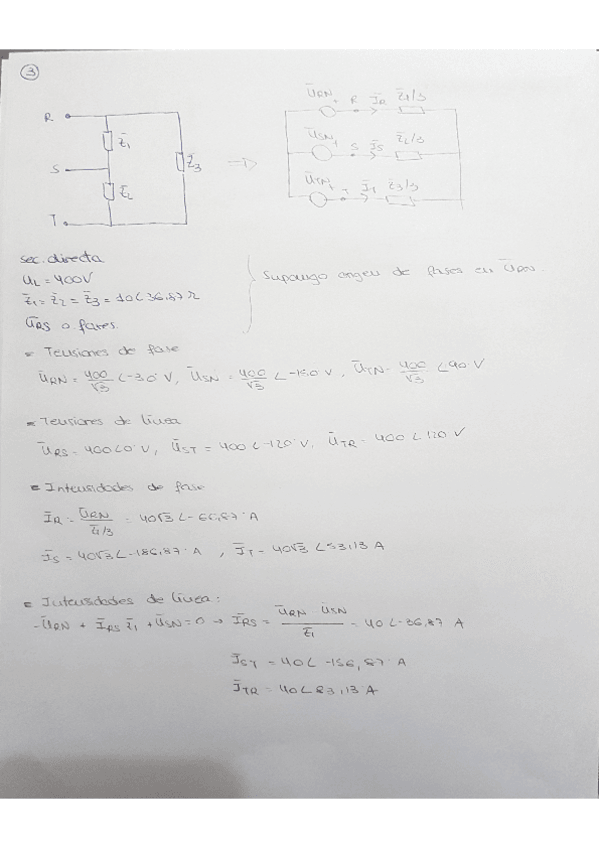 3
R
S
T
Z̄1
Z̄2
Z̄3
=>
ŪRN + R ĪR Z̄1/3
ŪSN + S ĪS Z̄2/3
ŪTN + T ĪT Z̄3/3
sec. directa
UL = 400V
Z̄1 = Z̄2 = Z̄3 = 10∠36,87 Ω
ŪRS o. fases.
Supongo origen de fases en ŪRN.
* Tensiones de fase
ŪRN = 400/√3 ∠-30º V, ŪSN = 400/√3 ∠-150 V, ŪTN = 400/√3 ∠90 V
* Tensiones de línea
ŪRS = 400∠0º V, ŪST = 400∠-120º V, ŪTR = 400∠120º V
* Intensidades de fase
ĪR = ŪRN / Z̄1/3 = 40√3∠-66,87º A
ĪS = 40√3∠-186,87º A , ĪT = 40√3∠53,13 A
* Intensidades de línea:
-ŪRN + ĪRS Z̄1 + ŪSN = 0 → ĪRS = ŪRN - ŪSN / Z̄1 = 40∠-36,87 A
ĪST = 40∠-156,87º A
ĪTR = 40∠83,13º A